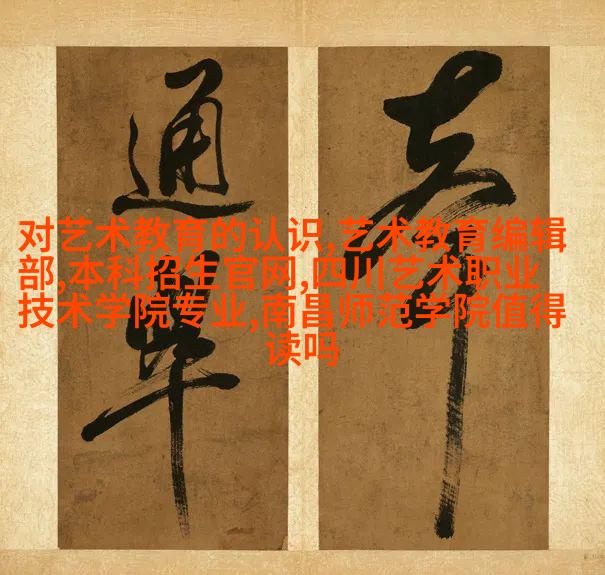 通
对艺术教育的认识,艺术教育编辑
部,本科招生官网,四川艺术职业
技术学院专业,南昌师范学院值得
读吗